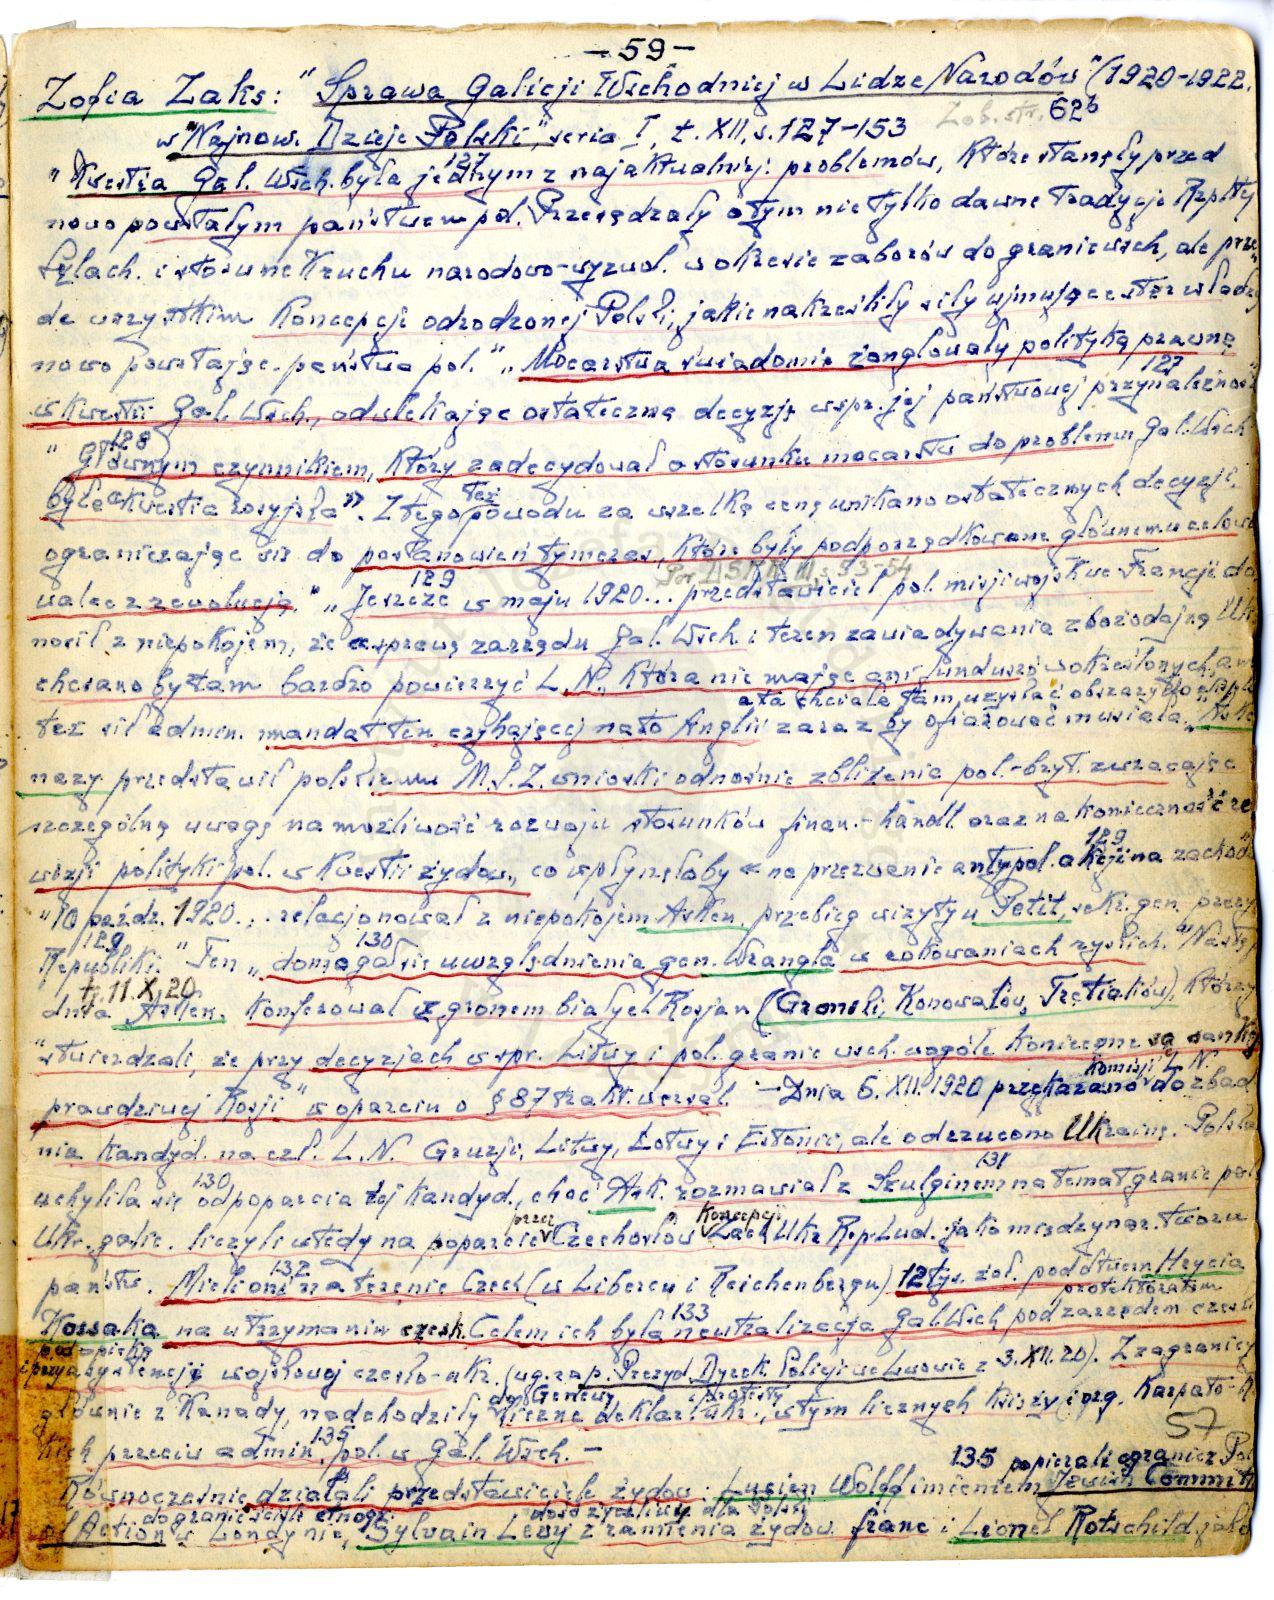 – 59 –
Zofia Zaks: "Sprawa Galicji Wschodniej w Lidze Narodów" (1920-1922.
Zob. str. 62b
w "Najnow. Dzieje Polski", seria I, t. XII, s. 127-153
"Kwestia Gal. Wsch. była jednym z najaktualniej: problemów, które stanęły przed
127
nowo powstałym państwem pol. Przesądzały o tym nie tylko dawne tradycje Rzplty
Szlach. i stosunek ruchu narodowo-wyzwol. w okresie zaborów do granic wsch, ale prze
de wszystkim koncepcje odrodzonej Polski, jakie nakreśliły siły ujmujące ster władzy
nowo powstając. państwa pol." "Mocarstwa świadomie żonglowały polityką prawną
127
w kwestii Gal. Wsch., odwlekając ostateczną decyzję w spr. jej państwowej przynależnoś
128
"Głównym czynnikiem, który zadecydował o stosunku mocarstw do problemu Gal. Wsch
była "kwestia rosyjska". Z tego też powodu za wszelką cenę unikano ostatecznych decyzji,
ograniczając się do postanowień tymczas., które były podporządkowane głównemu celowi
Por. III, s. 53-54
walce z rewolucją." "Jeszcze w maju 1920... przedstawiciel pol. misji wojsk we Francji do
129
nosił z niepokojem, że sprawę zarządu Gal. Wsch. i teren zawiadywania zbożodajną Ukr
chciano by tam bardzo powierzyć L.N., która nie mając ani funduszów określonych, ani
a ta chciała tam uzyskać obszary
też sił admin. mandat ten czyhającej na to Anglii zaraz by ofiarować musiała." Aske
nazy przedstawił polskiemu M.S.Z. wnioski odnośnie zbliżenia pol.-bryt. zwracając
szczególną uwagę na możliwość rozwoju stosunków finan.-handl. oraz na konieczność re
129
wizji polityki pol. w kwestii żydow., co wpłynęłoby "na przerwanie antypol. akcji na zachod
"10 paźdz. 1920... relacjonował z niepokojem Asken. przebieg wizyty u Petit, sekr. gen. prezy
129 130
Republiki." Ten "domagał się uwzględnienia gen. Wrangla w rokowaniach ryskich." Następ
tj. 11.X.20
dnia Asken. konferował z gronem białych Rosjan (Gronski, Konowałow, Tretiakow), którzy
"stwierdzali, że przy decyzjach w spr. Litwy i pol. granic wsch. wogóle konieczne są sankc
Komisji L.N.
prawdziwej Rosji" w oparciu o § 87 trakt. wersal. – Dnia 6.XII.1920 przekazano do zbad
nia kandyd. na czł. L.N. Gruzji, Litwy, Łotwy i Estonii, ale odrzucono Ukrainę. Polska
130 131
uchyliła się od poparcia tej kandyd., choć Ask. rozmawiał z Szulginem na temat granic pol
przez koncepcji
Ukr. galic. liczyli wtedy na poparcie Czechosłow Zach Ukr Rep Lud. jako międzynar. tworu
132
państw. Mieli oni na terenie Czech (w Libercu i Reichenbergu) 12 tys. żoł. pod dtwem Hrycia
133 protektoratem
Kossaka na utrzymaniu czesk. Celem ich była neutralizacja Gal Wsch pod zarządem czeski
pod opieką
i przy asystencji wojskowej czesko-ukr. (wg. rap. Prezyd. Dyrek. Policji we Lwowie z 3.XII.20). Z zagranicy
do Genewy i protesty
głównie z Kanady, nadchodziły liczne deklar. ukr., w tym licznych księży i org. Karpato-R
57
135
nich przeciw admin. pol. w Gal. Wsch. –
135 popierali ogranicz. Pol
Równocześnie działali przedstawiciele żydow: Lucien Wolff imieniem Jewish Committ
do granic ściśle etnogr. dość życzliwy dla Polski
of Action w Londynie, Sylvain Levy z ramienia żydow. franc i Lionel Rotschild jako